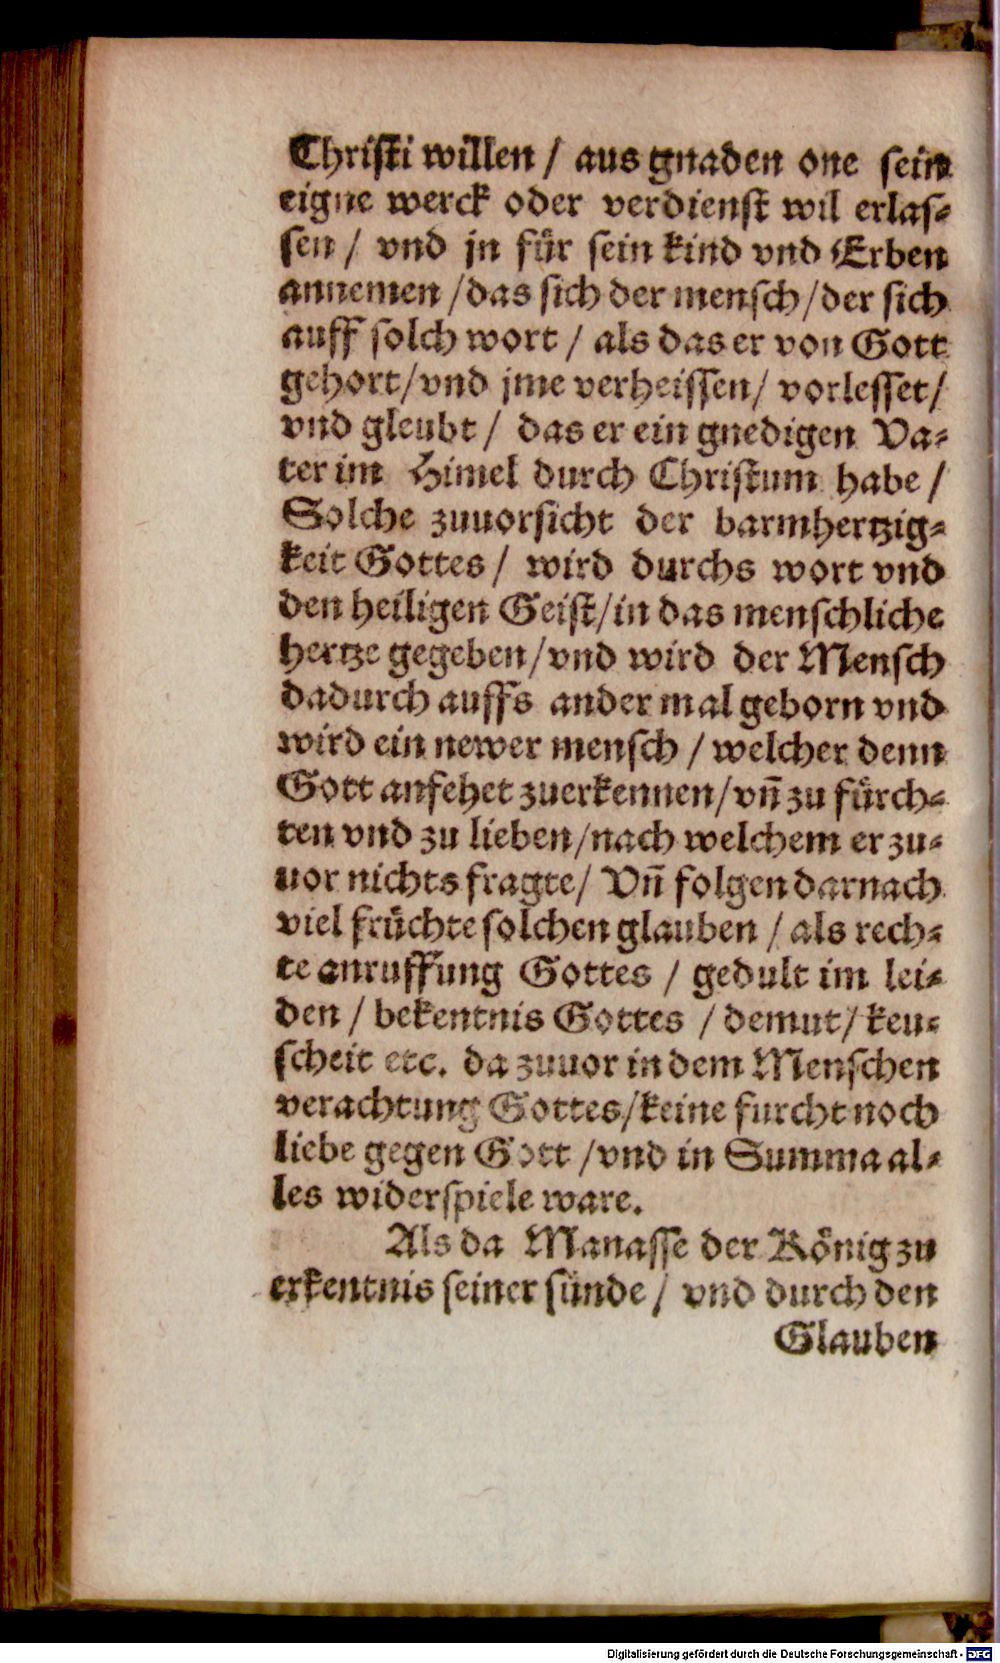 Christi willen / aus gnaden one sein
eigne werck oder verdienst wil erlas⸗
sen / vnd jn für sein kind vnd Erben
annemen / das sich der mensch / der sich
auff solch wort / als das er von Gott
gehort / vnd jme verheissen / vorlesset /
vnd gleubt / das er ein gnedigen Va⸗
ter im Himel durch Christum habe /
Solche zuuorsicht der barmhertzig⸗
keit Gottes / wird durchs wort vnd
den heiligen Geist / in das menschliche
hertze gegeben / vnd wird der Mensch
dadurch auffs ander mal geborn vnd
wird ein newer mensch / welcher denn
Gott anfehet zuerkennen / vñ zu fürch⸗
ten vnd zu lieben / nach welchem er zu⸗
uor nichts fragte / Vñ folgen darnach
viel früchte solchen glauben / als rech⸗
te anruffung Gottes / gedult im lei⸗
den / bekentnis Gottes / demut / keu⸗
scheit etc. da zuuor in dem Menschen
verachtung Gottes / keine furcht noch
liebe gegen Gott / vnd in Summa al⸗
les widerspiele ware.
Als da Manasse der König zu
erkentnis seiner sünde / vnd durch den
Glauben
Digitalisierung gefördert durch die Deutsche Forschungsgemeinschaft - DFG